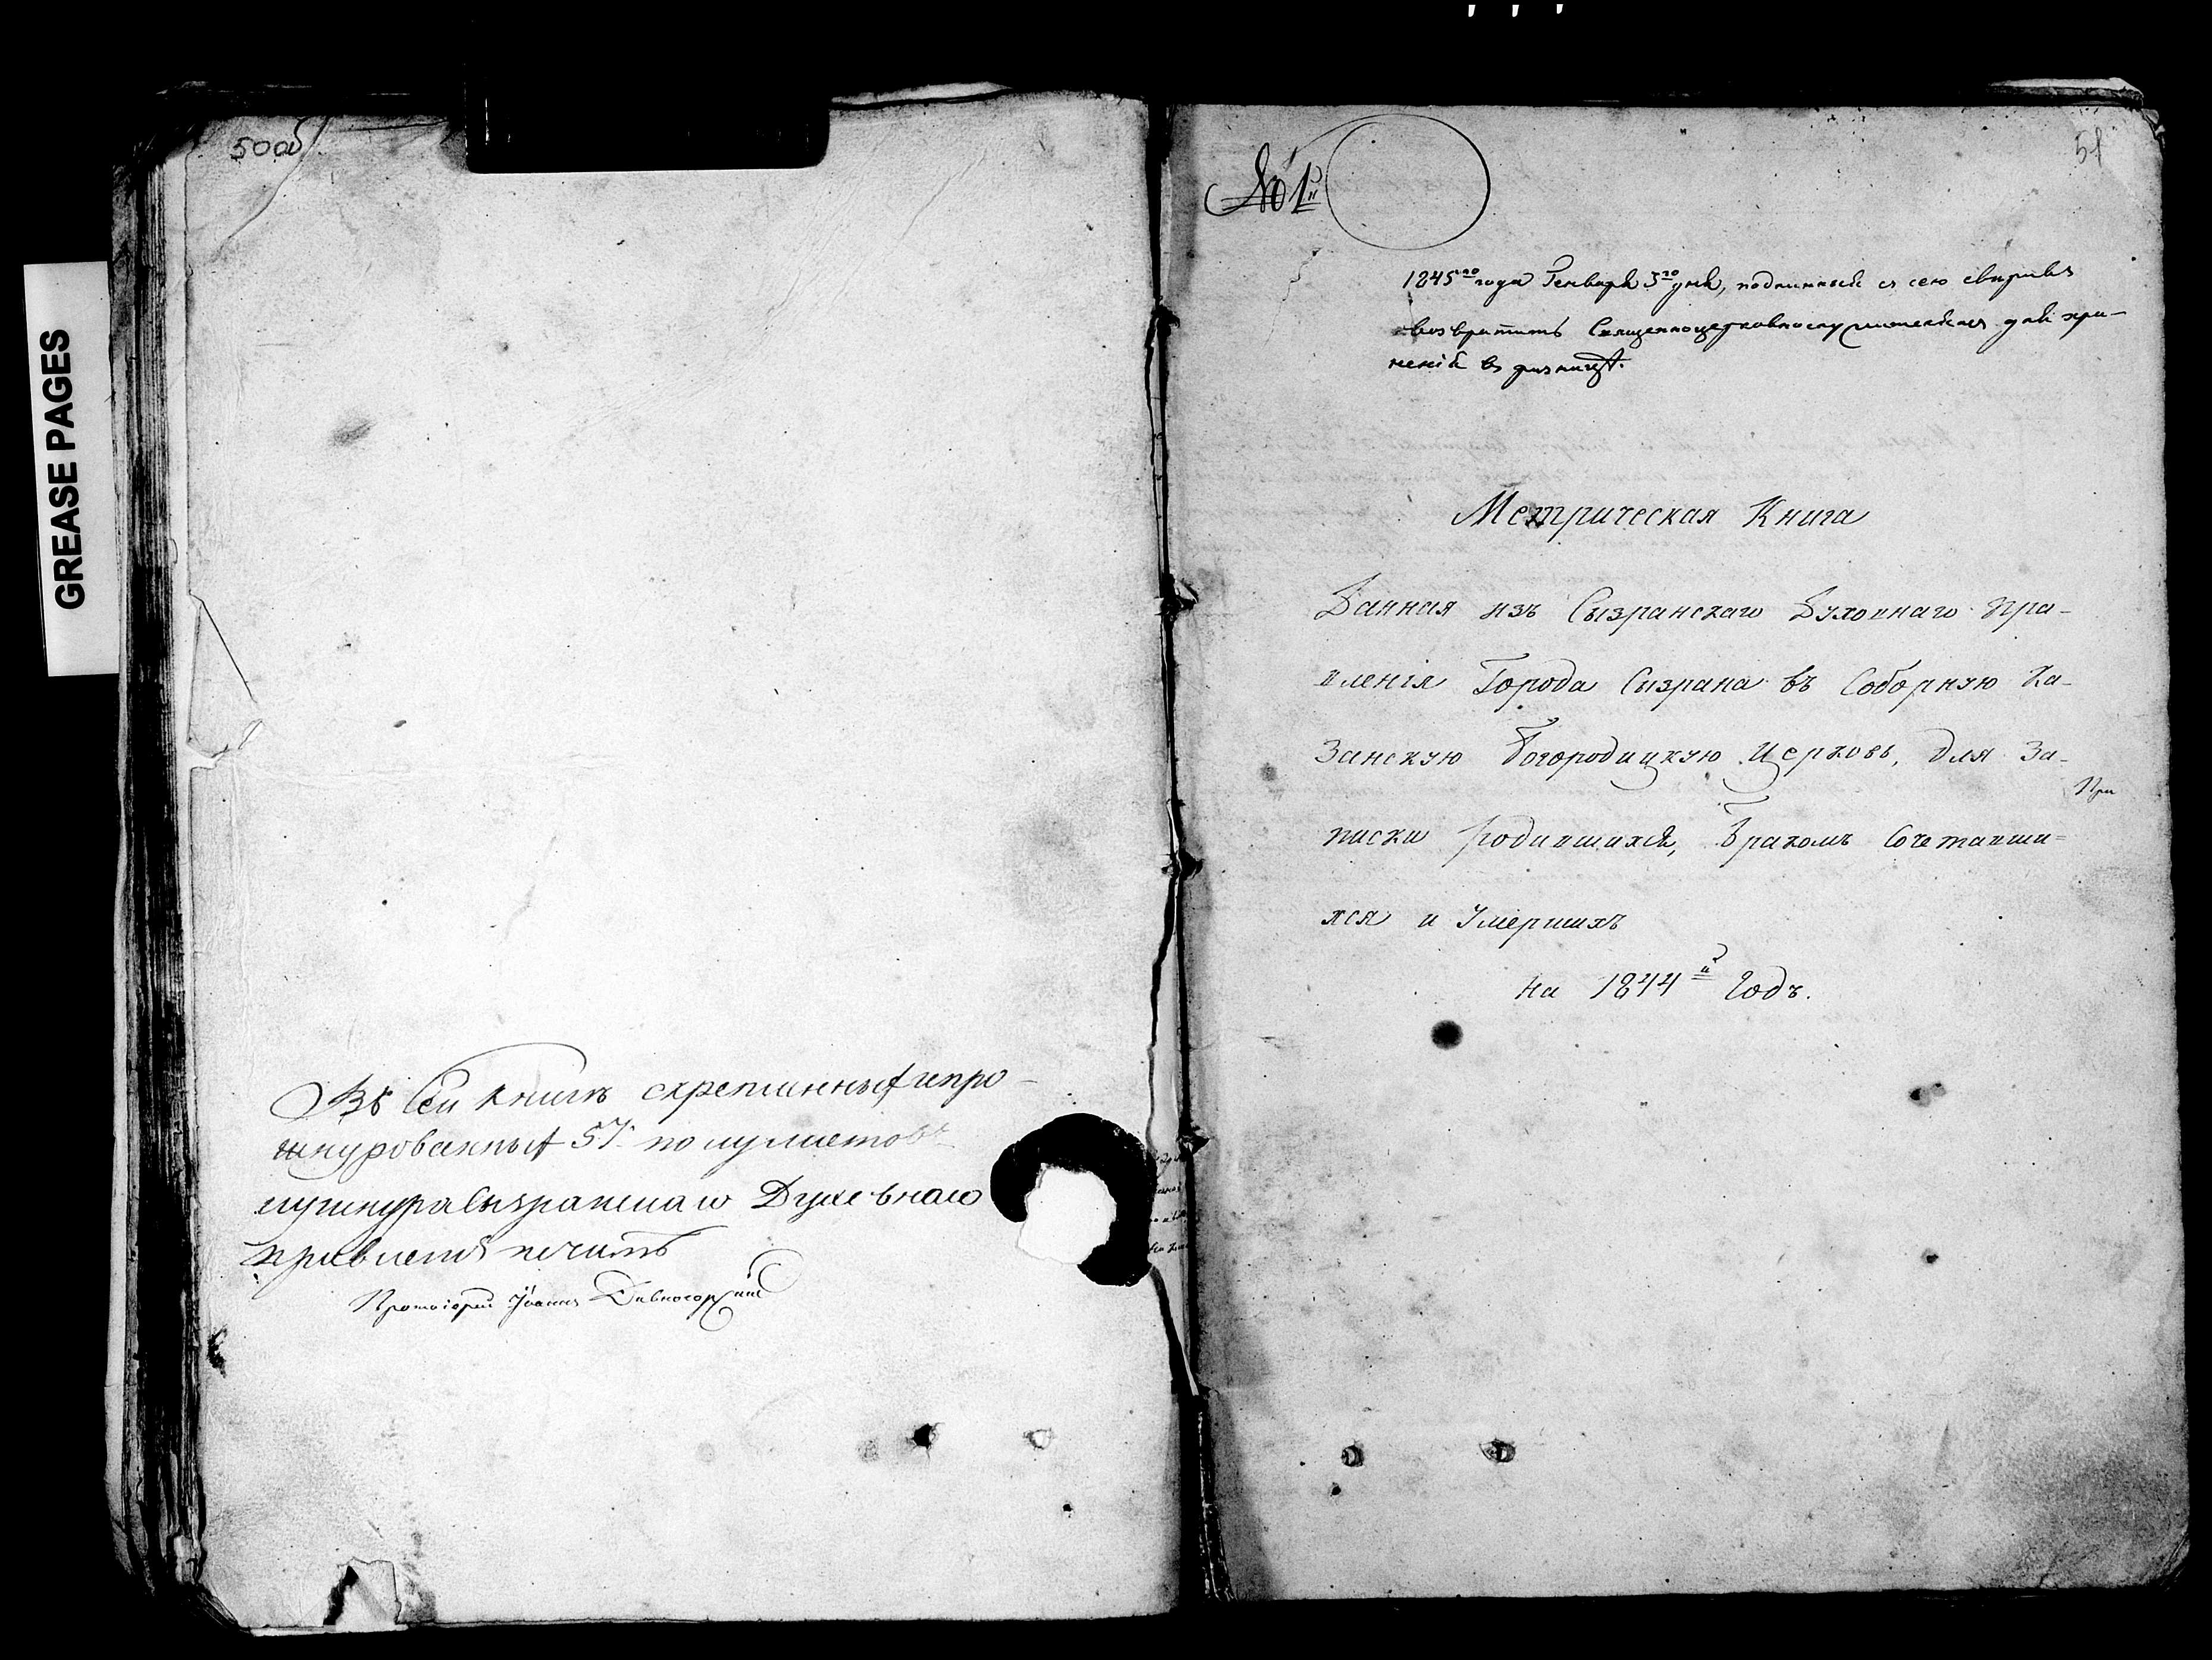 GREASE PAGES
50об
Въ сей книгѣ скрепленныхъ и про-
шнурованныхъ 57. полулистовъ
у шнура Сызранскаго Духовнаго
правленія печать
Протоіерей Іоаннъ Дивногорскій
51
№ 1й
1845го года Генваря 3го дня, подлинный съ сею сверивъ
возвратить Священноцерковнослужителямъ для хра-
ненія въ ризницѣ.
Метрическая Книга
Данная изъ Сызранскаго Духовнаго Пра-
вленія Города Сызрана въ Соборную Ка-
занскую Богородицкую Церковь, для За-
При
писки родившихся, Бракомъ Сочетавши-
хся и Умершихъ
на 1844й Годъ.